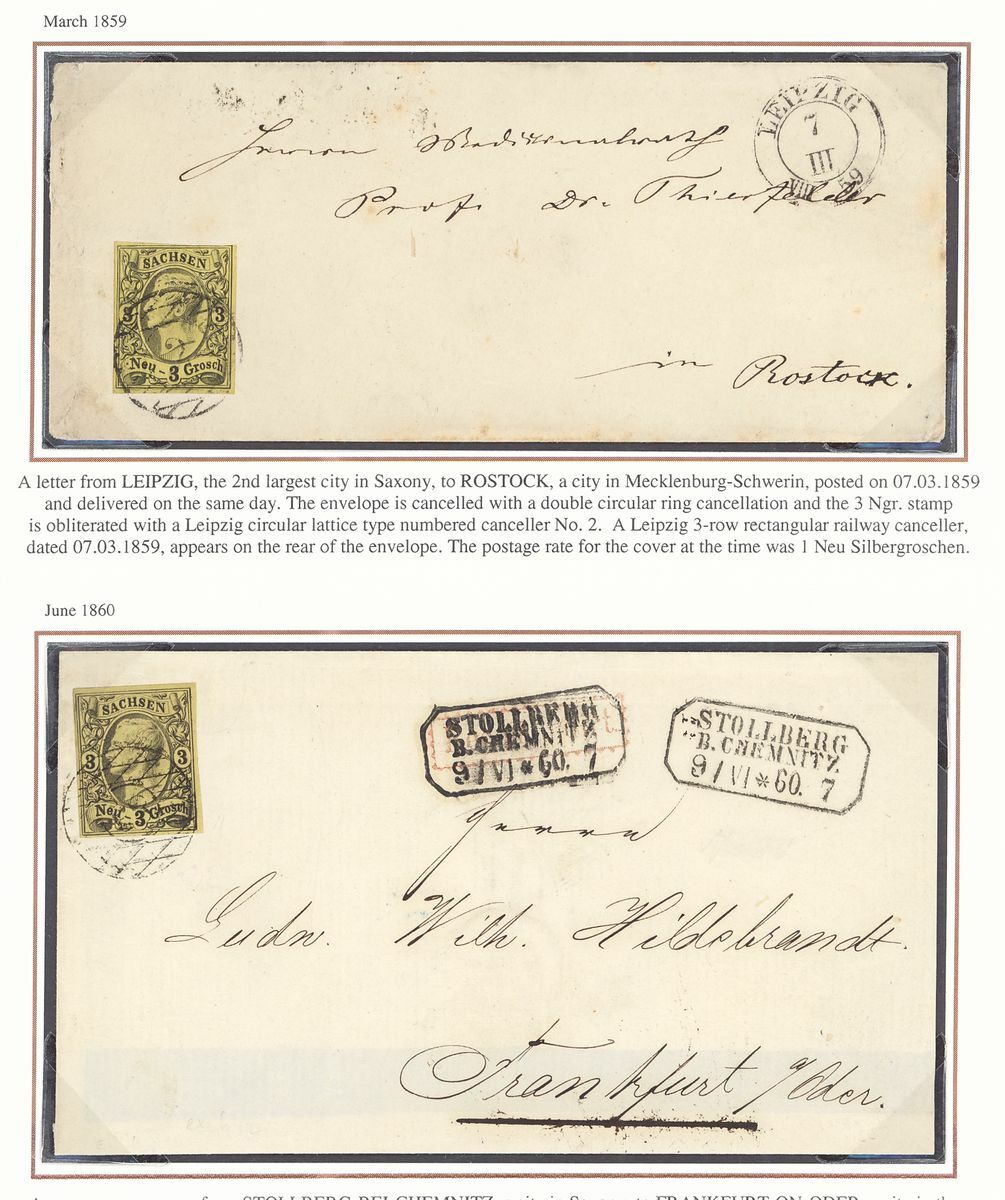 March 1859
LEIPZIG
7
III
VIII 59
Herrn Medizinalrath
Prof. Dr. Thierfelder
SACHSEN
3 3
Neu - 3 Grosch
in Rostock.
A letter from LEIPZIG, the 2nd largest city in Saxony, to ROSTOCK, a city in Mecklenburg-Schwerin, posted on 07.03.1859
and delivered on the same day. The envelope is cancelled with a double circular ring cancellation and the 3 Ngr. stamp
is obliterated with a Leipzig circular lattice type numbered canceller No. 2. A Leipzig 3-row rectangular railway canceller,
dated 07.03.1859, appears on the rear of the envelope. The postage rate for the cover at the time was 1 Neu Silbergroschen.
June 1860
SACHSEN
3 3
Neu - 3 Grosch
STOLLBERG
B. CHEMNITZ
9 / VI * 60. 7
STOLLBERG
B. CHEMNITZ
9 / VI * 60. 7
Herrn
Ludw. Wilh. Hildebrandt.
Frankfurt a/Oder.
from STOLLBERG BEI CHEMNITZ, a city in Saxony to FRANKFURT ON ODER, a city in the